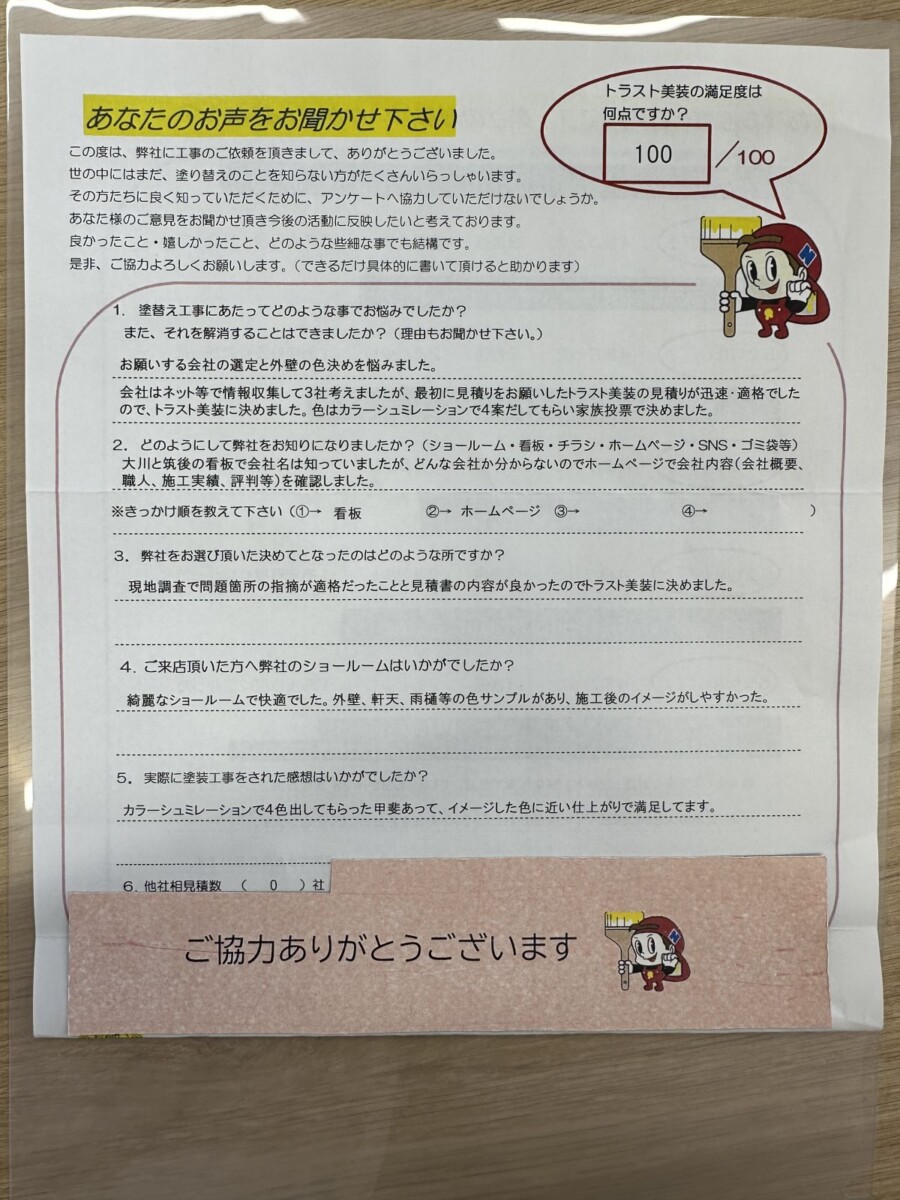 あなたのお声をお聞かせ下さい
トラスト美装の満足度は
何点ですか?
100 /100
この度は、弊社に工事のご依頼を頂きまして、ありがとうございました。
世の中にはまだ、塗り替えのことを知らない方がたくさんいらっしゃいます。
その方たちに良く知っていただくために、アンケートへ協力していただけないでしょうか。
あなた様のご意見をお聞かせ頂き今後の活動に反映したいと考えております。
良かったこと・嬉しかったこと、どのような些細な事でも結構です。
是非、ご協力よろしくお願いします。(できるだけ具体的に書いて頂けると助かります)
1. 塗替え工事にあたってどのような事でお悩みでしたか?
また、それを解消することはできましたか?(理由もお聞かせ下さい。)
お願いする会社の選定と外壁の色決めを悩みました。
会社はネット等で情報収集して3社考えましたが、最初に見積りをお願いしたトラスト美装の見積りが迅速・適格でした
ので、トラスト美装に決めました。色はカラーシュミレーションで4案だしてもらい家族投票で決めました。
2. どのようにして弊社をお知りになりましたか?(ショールーム・看板・チラシ・ホームページ・SNS・ゴミ袋等)
大川と筑後の看板で会社名は知っていましたが、どんな会社か分からないのでホームページで会社内容(会社概要、
職人、施工実績、評判等)を確認しました。
※きっかけ順を教えて下さい(①→ 看板 ②→ ホームページ ③→ ④→ )
3. 弊社をお選び頂いた決めてとなったのはどのような所ですか?
現地調査で問題箇所の指摘が適格だったことと見積書の内容が良かったのでトラスト美装に決めました。
4. ご来店頂いた方へ弊社のショールームはいかがでしたか?
綺麗なショールームで快適でした。外壁、軒天、雨樋等の色サンプルがあり、施工後のイメージがしやすかった。
5. 実際に塗装工事をされた感想はいかがでしたか?
カラーシュミレーションで4色出してもらった甲斐あって、イメージした色に近い仕上がりで満足してます。
6. 他社相見積数 ( 0 )社
ご協力ありがとうございます